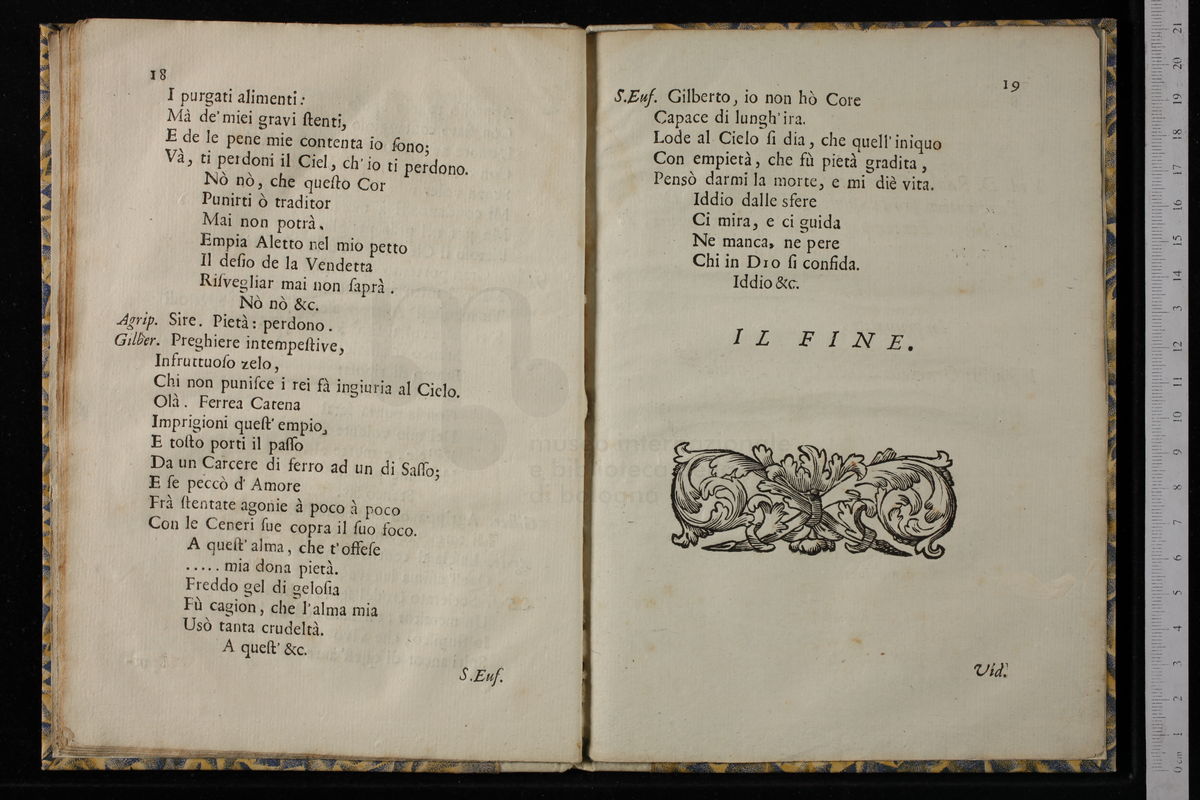 18
I purgati alimenti:
Mà de' miei gravi ſtenti,
E de le pene mie contenta io ſono;
Và, ti perdoni il Ciel, ch' io ti perdono.
Nò nò, che queſto Cor
Punirti ò traditor
Mai non potrà.
Empia Aletto nel mio petto
Il deſio de la Vendetta
Riſvegliar mai non ſaprà.
Nò nò &c.
Agrip. Sire. Pietà: perdono.
Gilber. Preghiere intempeſtive,
Infruttuoſo zelo,
Chi non puniſce i rei fà ingiuria al Cielo.
Olà. Ferrea Catena
Imprigioni queſt' empio,
E toſto porti il paſſo
Da un Carcere di ferro ad un di Saſſo;
E ſe peccò d' Amore
Frà ſtentate agonie à poco à poco
Con le Ceneri ſue copra il ſuo foco.
A queſt' alma, che t' offeſe
..... mia dona pietà.
Freddo gel di geloſia
Fù cagion, che l'alma mia
Usò tanta crudeltà.
A queſt' &c.
S.Euf.
19
S.Euf. Gilberto, io non hò Core
Capace di lungh' ira.
Lode al Cielo ſi dia, che quell' iniquo
Con empietà, che fù pietà gradita,
Pensò darmi la morte, e mi diè vita.
Iddio dalle sfere
Ci mira, e ci guida
Ne manca, ne pere
Chi in DIO ſi confida.
Iddio &c.
IL FINE.
Vid.
museo internazionale
e biblioteca
di bologna